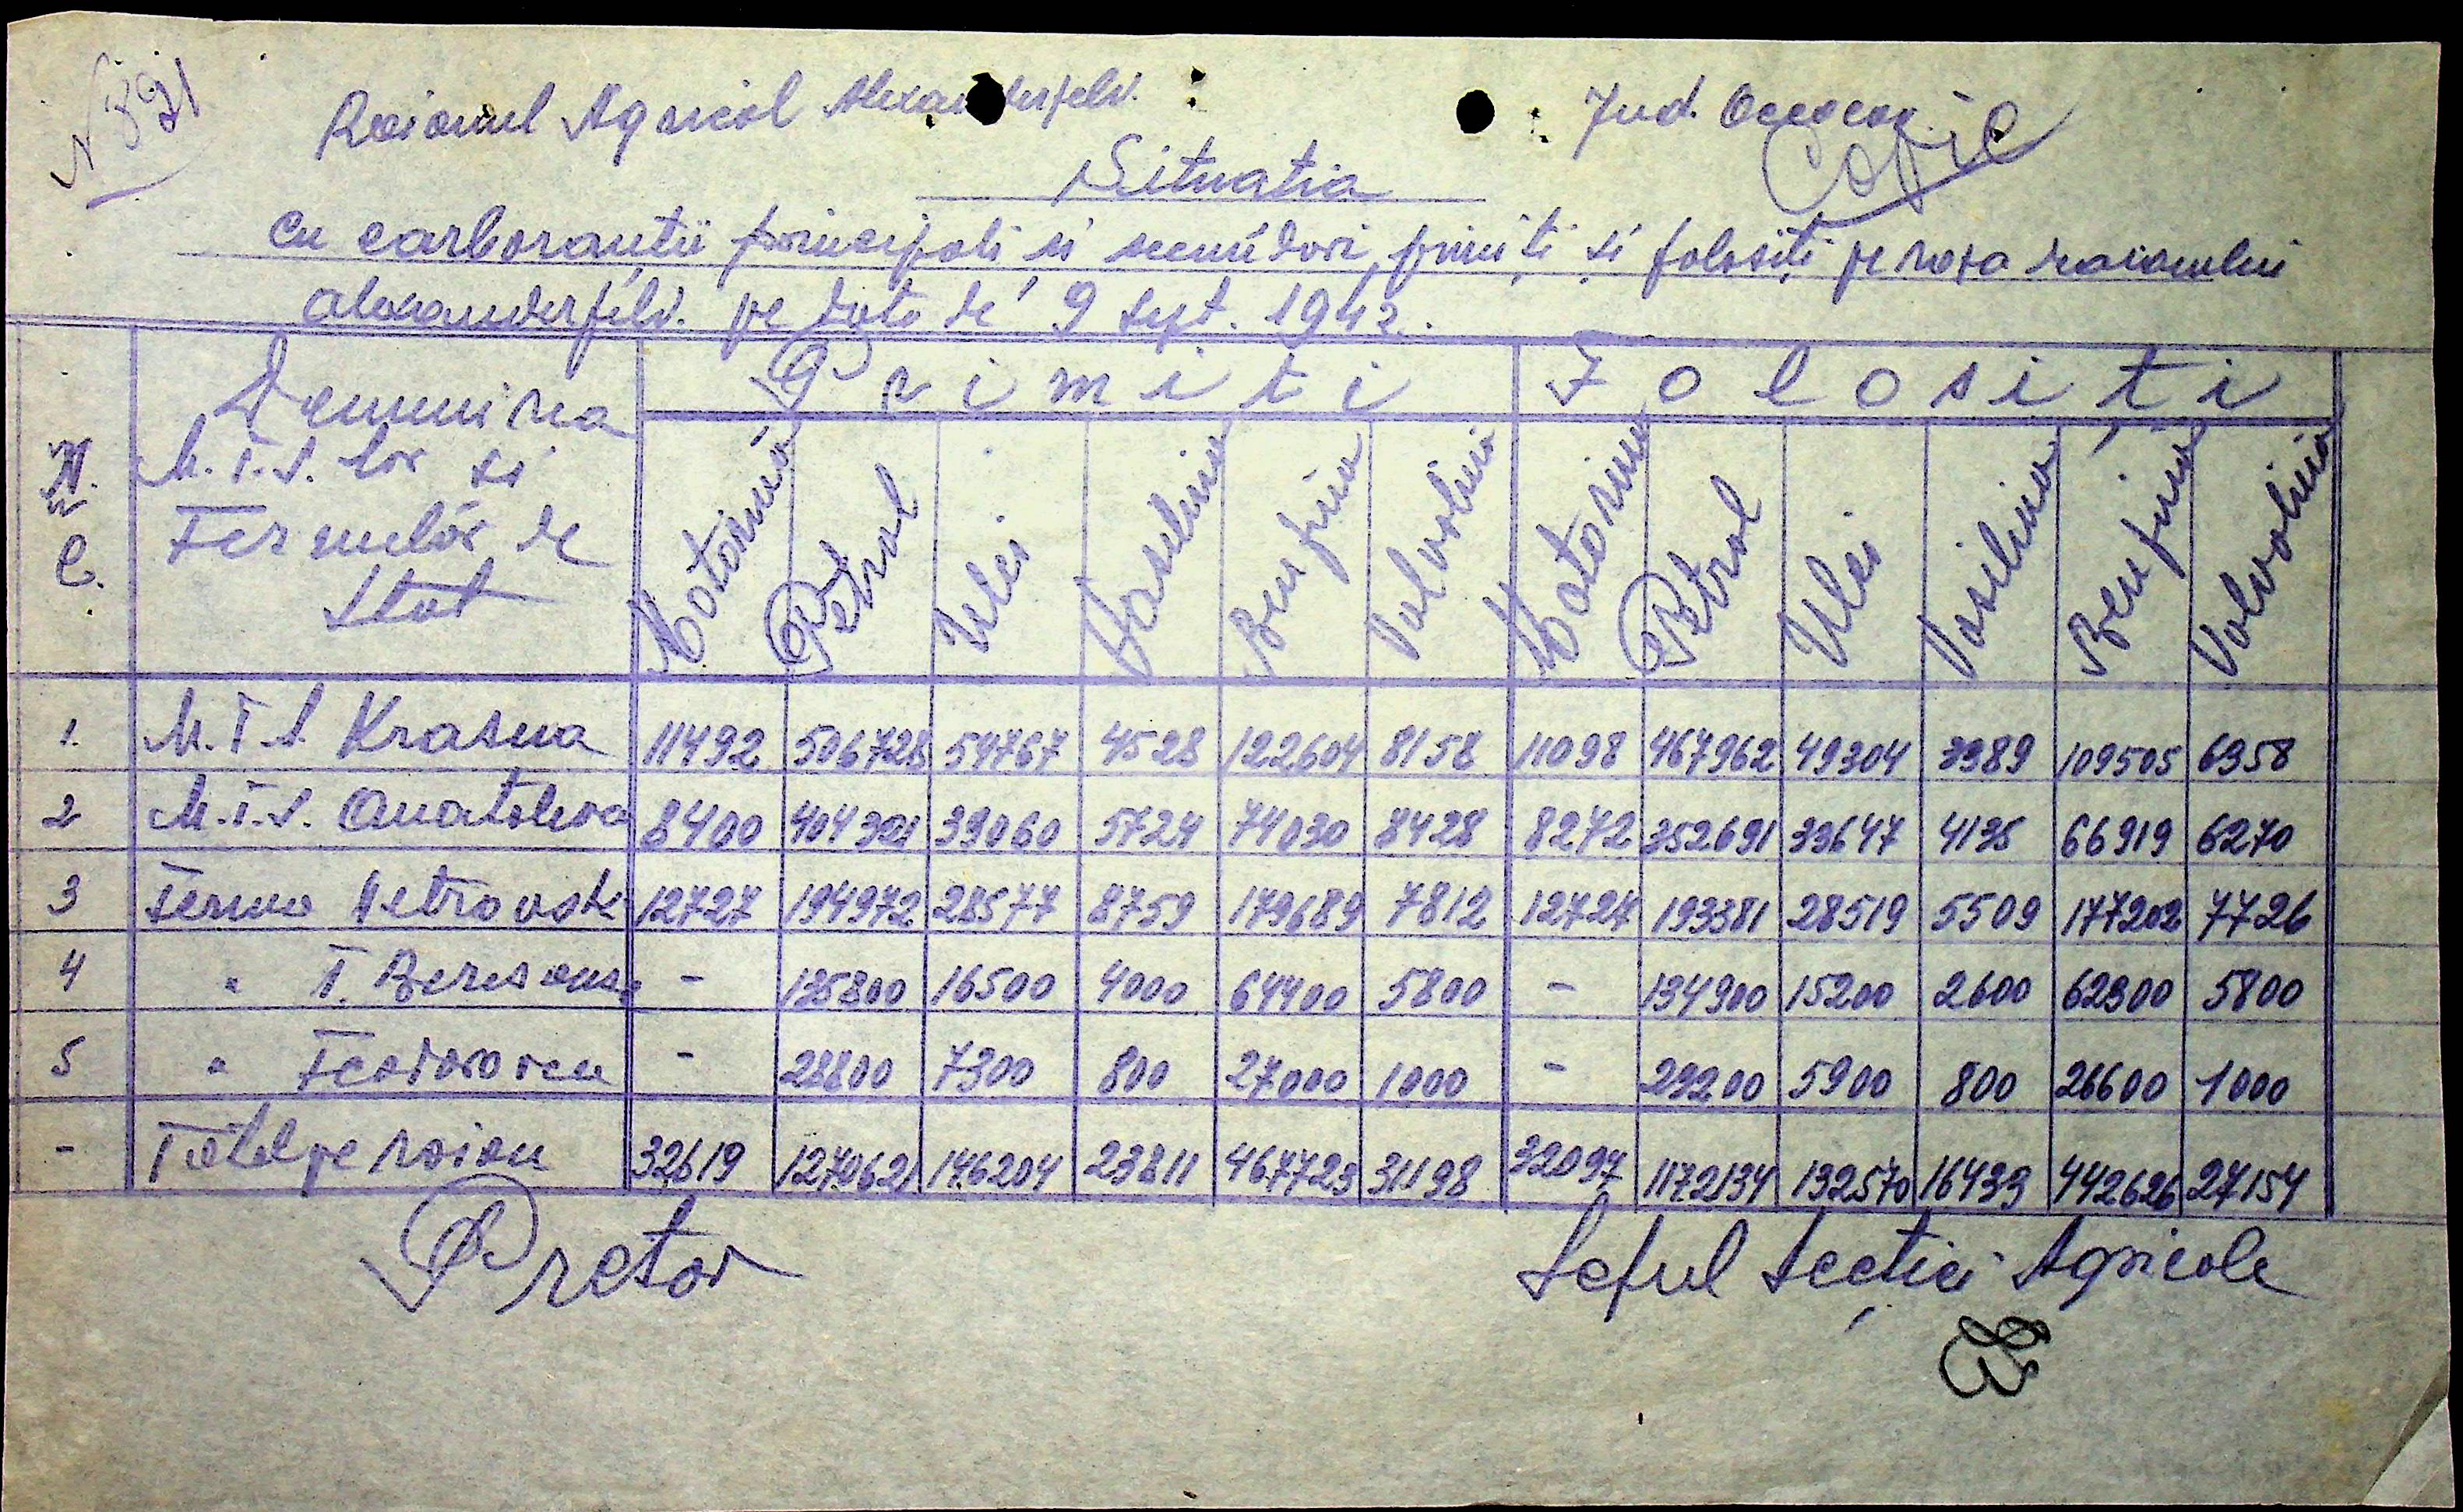 N 891
Raionul Agricol Alexanderfeld.
Jud. Oceacov.
Copie
Situatia
cu carborantii principali si secundori, primiti si folositi pe raza raionului
alexanderfeld. pe data de 9 sept. 1942.
N. C. Denumirea M.T.S. lor si Fermelor de Stat Primiti Folositi
Motorina Petrol Ulei Vasilina Benzina Valvolina Motorina Petrol Ulei Vasilina Benzina Valvolina
1. M.T.S. Krasna 11492 506728 54767 4528 122604 8158 11098 467962 49304 3389 109505 6358
2 M.T.S. Anatoleva 8400 404321 39060 5724 74030 8428 8272 352691 33647 4135 66919 6270
3 Ferma Petrovsk 12727 194972 28577 8759 179689 7812 12727 193381 28519 5509 177202 7726
4 " T. Beresans - 135800 16500 4000 64400 5800 - 134900 15200 2600 62300 5800
5 " - 28800 7300 800 27000 1000 - 29200 5900 800 26600 1000
- Total pe raion 32619 1270621 146204 23811 467723 31198 32097 1172134 132570 16433 442626 27154
Pretor
Seful Sectiei Agricole